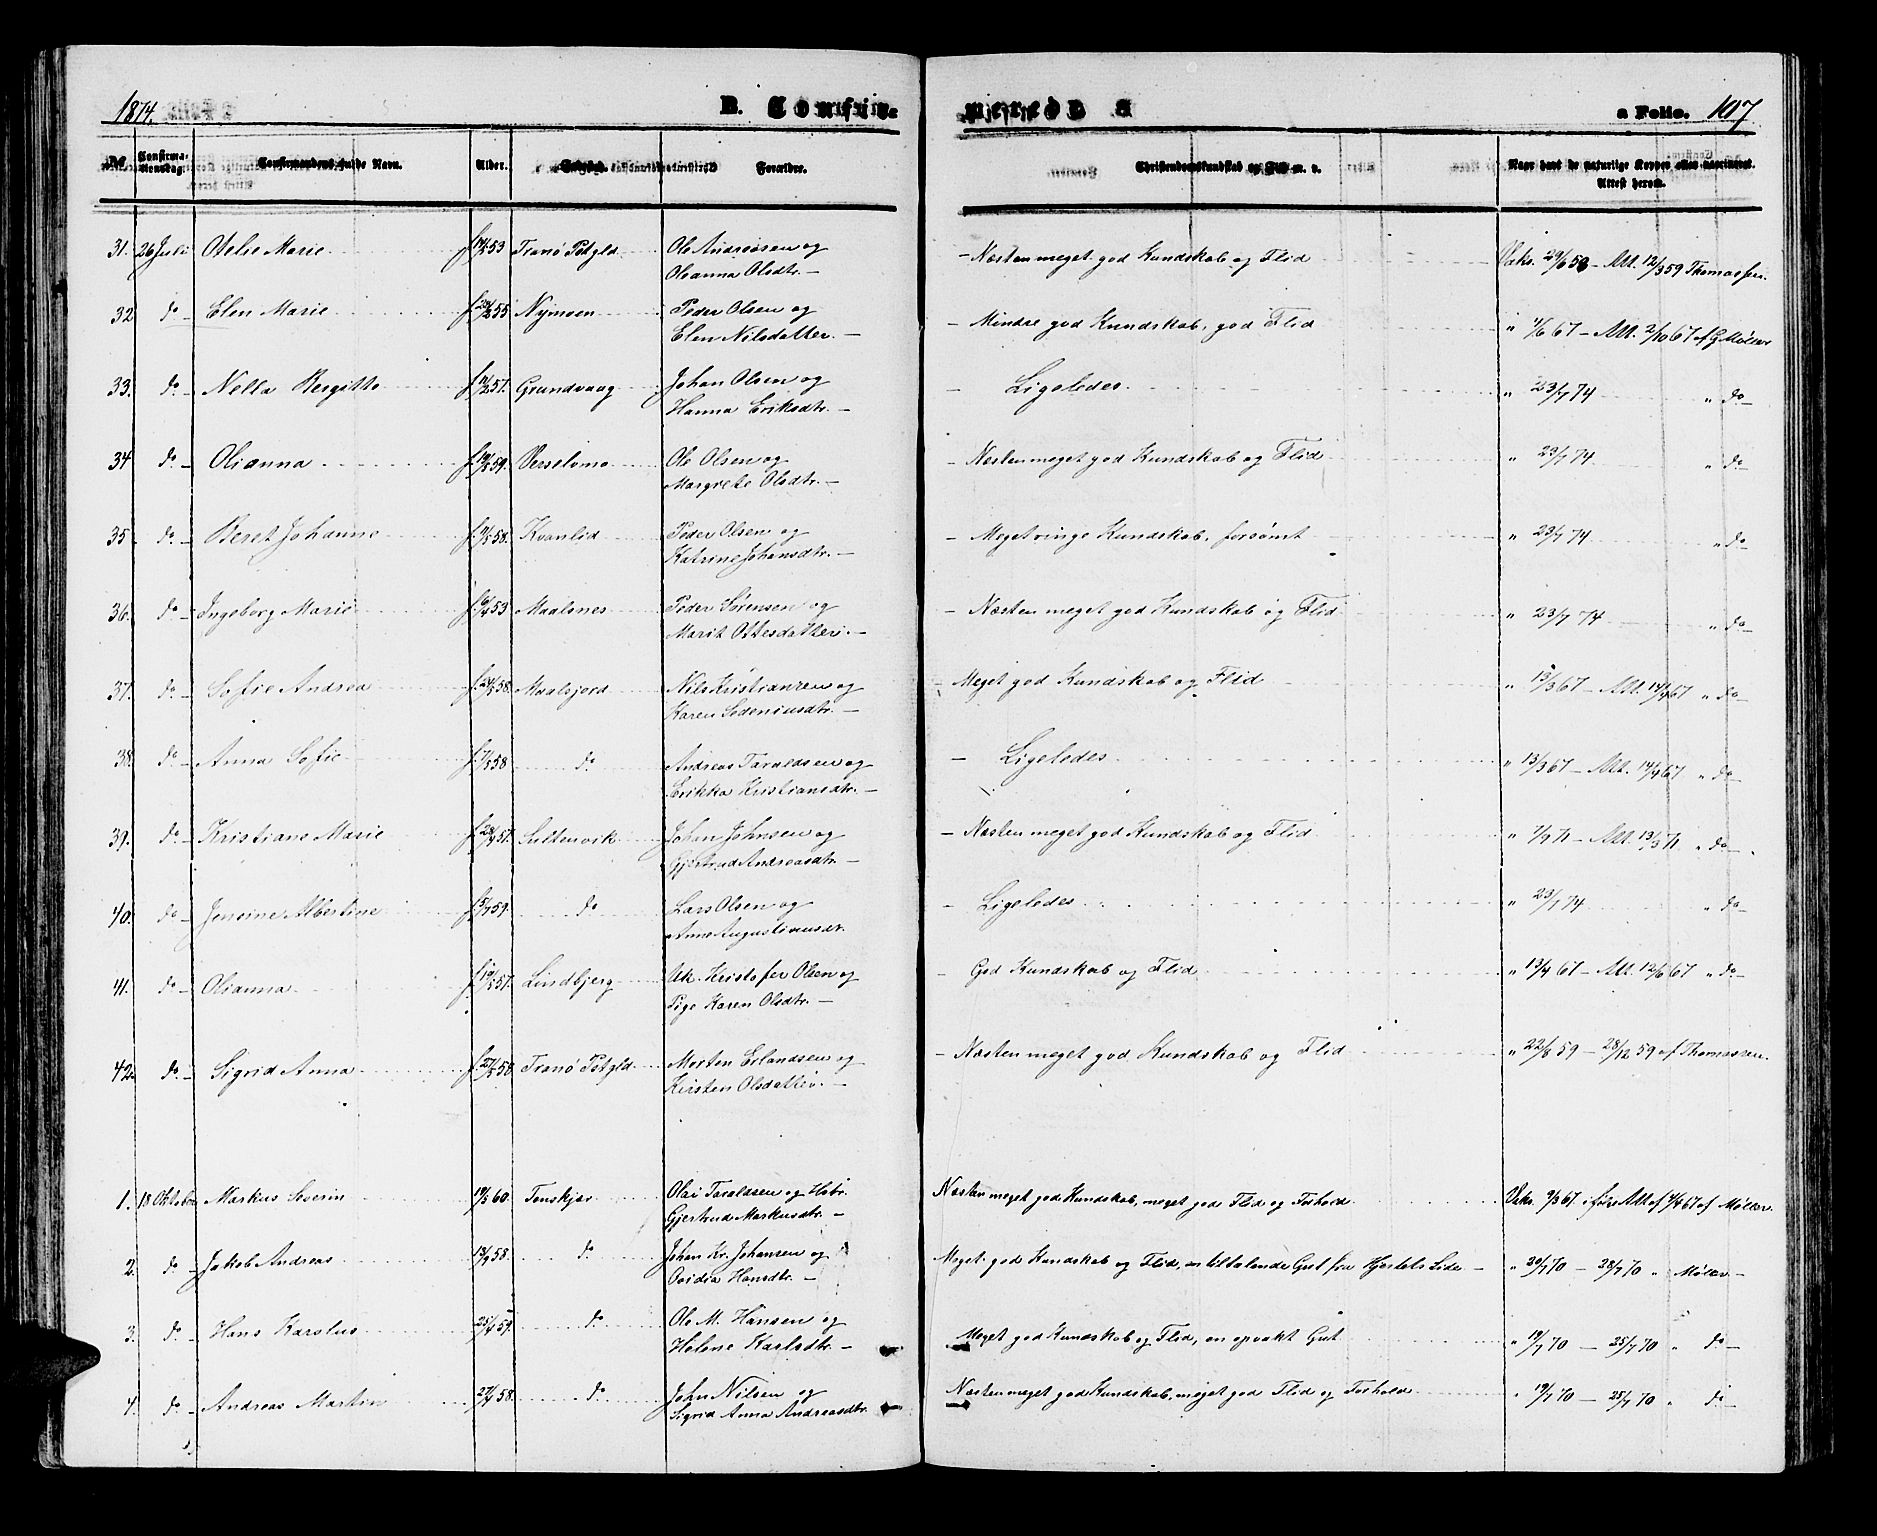 1874. B. Confir= merede a Folio. 107
No. Confirma-tionsdag. Confirmandens fulde Navn. Alder. Forældre. Christendomskundskab og Flid m. v. Naar havt de naturlige Kopper eller vaccineret. Attest herom.
31. 26 Juli Marie f. 53 Tranø Pstgld. Ole Andreasen og Oleanna Olsdtr. — Næsten meget god Kundskab og Flid Vaks. Att. 12/3 59 Thomassen.
32 do Elen Marie f. 55 Nymoen Peder Olsen og Elen Nilsdatter. — Mindre god Kundskab, god Flid " 67 — Att. 2/10 67 af G Møller
33. do Nella Bergitte f. 57. Grundvaag Johan Olsen og Hanna Eriksdtr. — Ligeledes. " 23/7 74 " do
34 do Olianna f. 59. Ole Olsen og Margrete Olsdtr. — Næsten meget god Kundskab og Flid " 23/7 74 " do
35 do Beret Johanne f. 58. Kvanlid Peder Olsen og Katrine Johansdtr. — Meget ringe Kundskab, forsømt " 23/7 74 " do
36. do Ingeborg Marie f. 53 Maalsnes Peder Sørensen og Marit Ottesdatter. — Næsten meget god Kundskab og Flid " 23/7 74 " do
37. do Sofie Andrea f. 58. Maalsjord Nils Kristiansen og Karen Sedeniusdtr. — Meget god Kundskab og Flid " 13/3 67 — Att. 14/4 67 " do
38. do Anna Sofie f. 58 do Andreas Taraldsen og Erikka Kristiansdtr. — Ligeledes " 13/3 67 — Att. 14/4 67 " do
39. do Kristiane Marie f. 57. Sultenvik John Johnsen og Gjertrud Andreasdtr. — Næsten meget god Kundskab og Flid " 71 — Att. 71 " do
40. do Jensine Albertine f. 59. do Lars Olsen og Anne Augustinusdr. — Ligeledes " 23/7 74 " do
41. do Olianna f. 57. Lindbjerg Uk. Kristofer Olsen og Pige Karen Olsdtr. — God Kundskab og Flid " 13/4 67 — Att. 12/6 67 " do
42. do Sigrid Anna f. 58 Tranø Pstgld. Morten Erlandsen og Kirsten Olsdatter. — Næsten meget god Kundskab og Flid " 22/8 59 — 28/12 59 af Thomassen.
1. 18 Oktober Markus Severin 60. Tenskjær Olai Taraldsen og Hstr. Gjertrud Markusdtr. — Næsten meget god Kundskab, meget god Flid og Forhold Vaks. 67 ifølge Att af 67 af Møller.
2. do Jakob Andreas 13/9 58. do Johan Kr. Johansen og Ovidia Hansdtr. — Meget god Kundskab og Flid, en tiltalende Gut fra Hjertets Side " 20/7 70 — 28/7 70 " Møller
3. do Hans Karolus 25/4 59. do Ole M. Hansen og Helene Karlsdtr. — Meget god Kundskab og Flid, en opvakt Gut " 19/7 70 — 25/7 70 " do
4. do Andreas Martin 27/4 58. do John Nilsen og Sigrid Anna Andreasdtr. Næsten meget god Kundskab, meget god Flid og Forhold " 19/7 70 — 25/7 70 " do